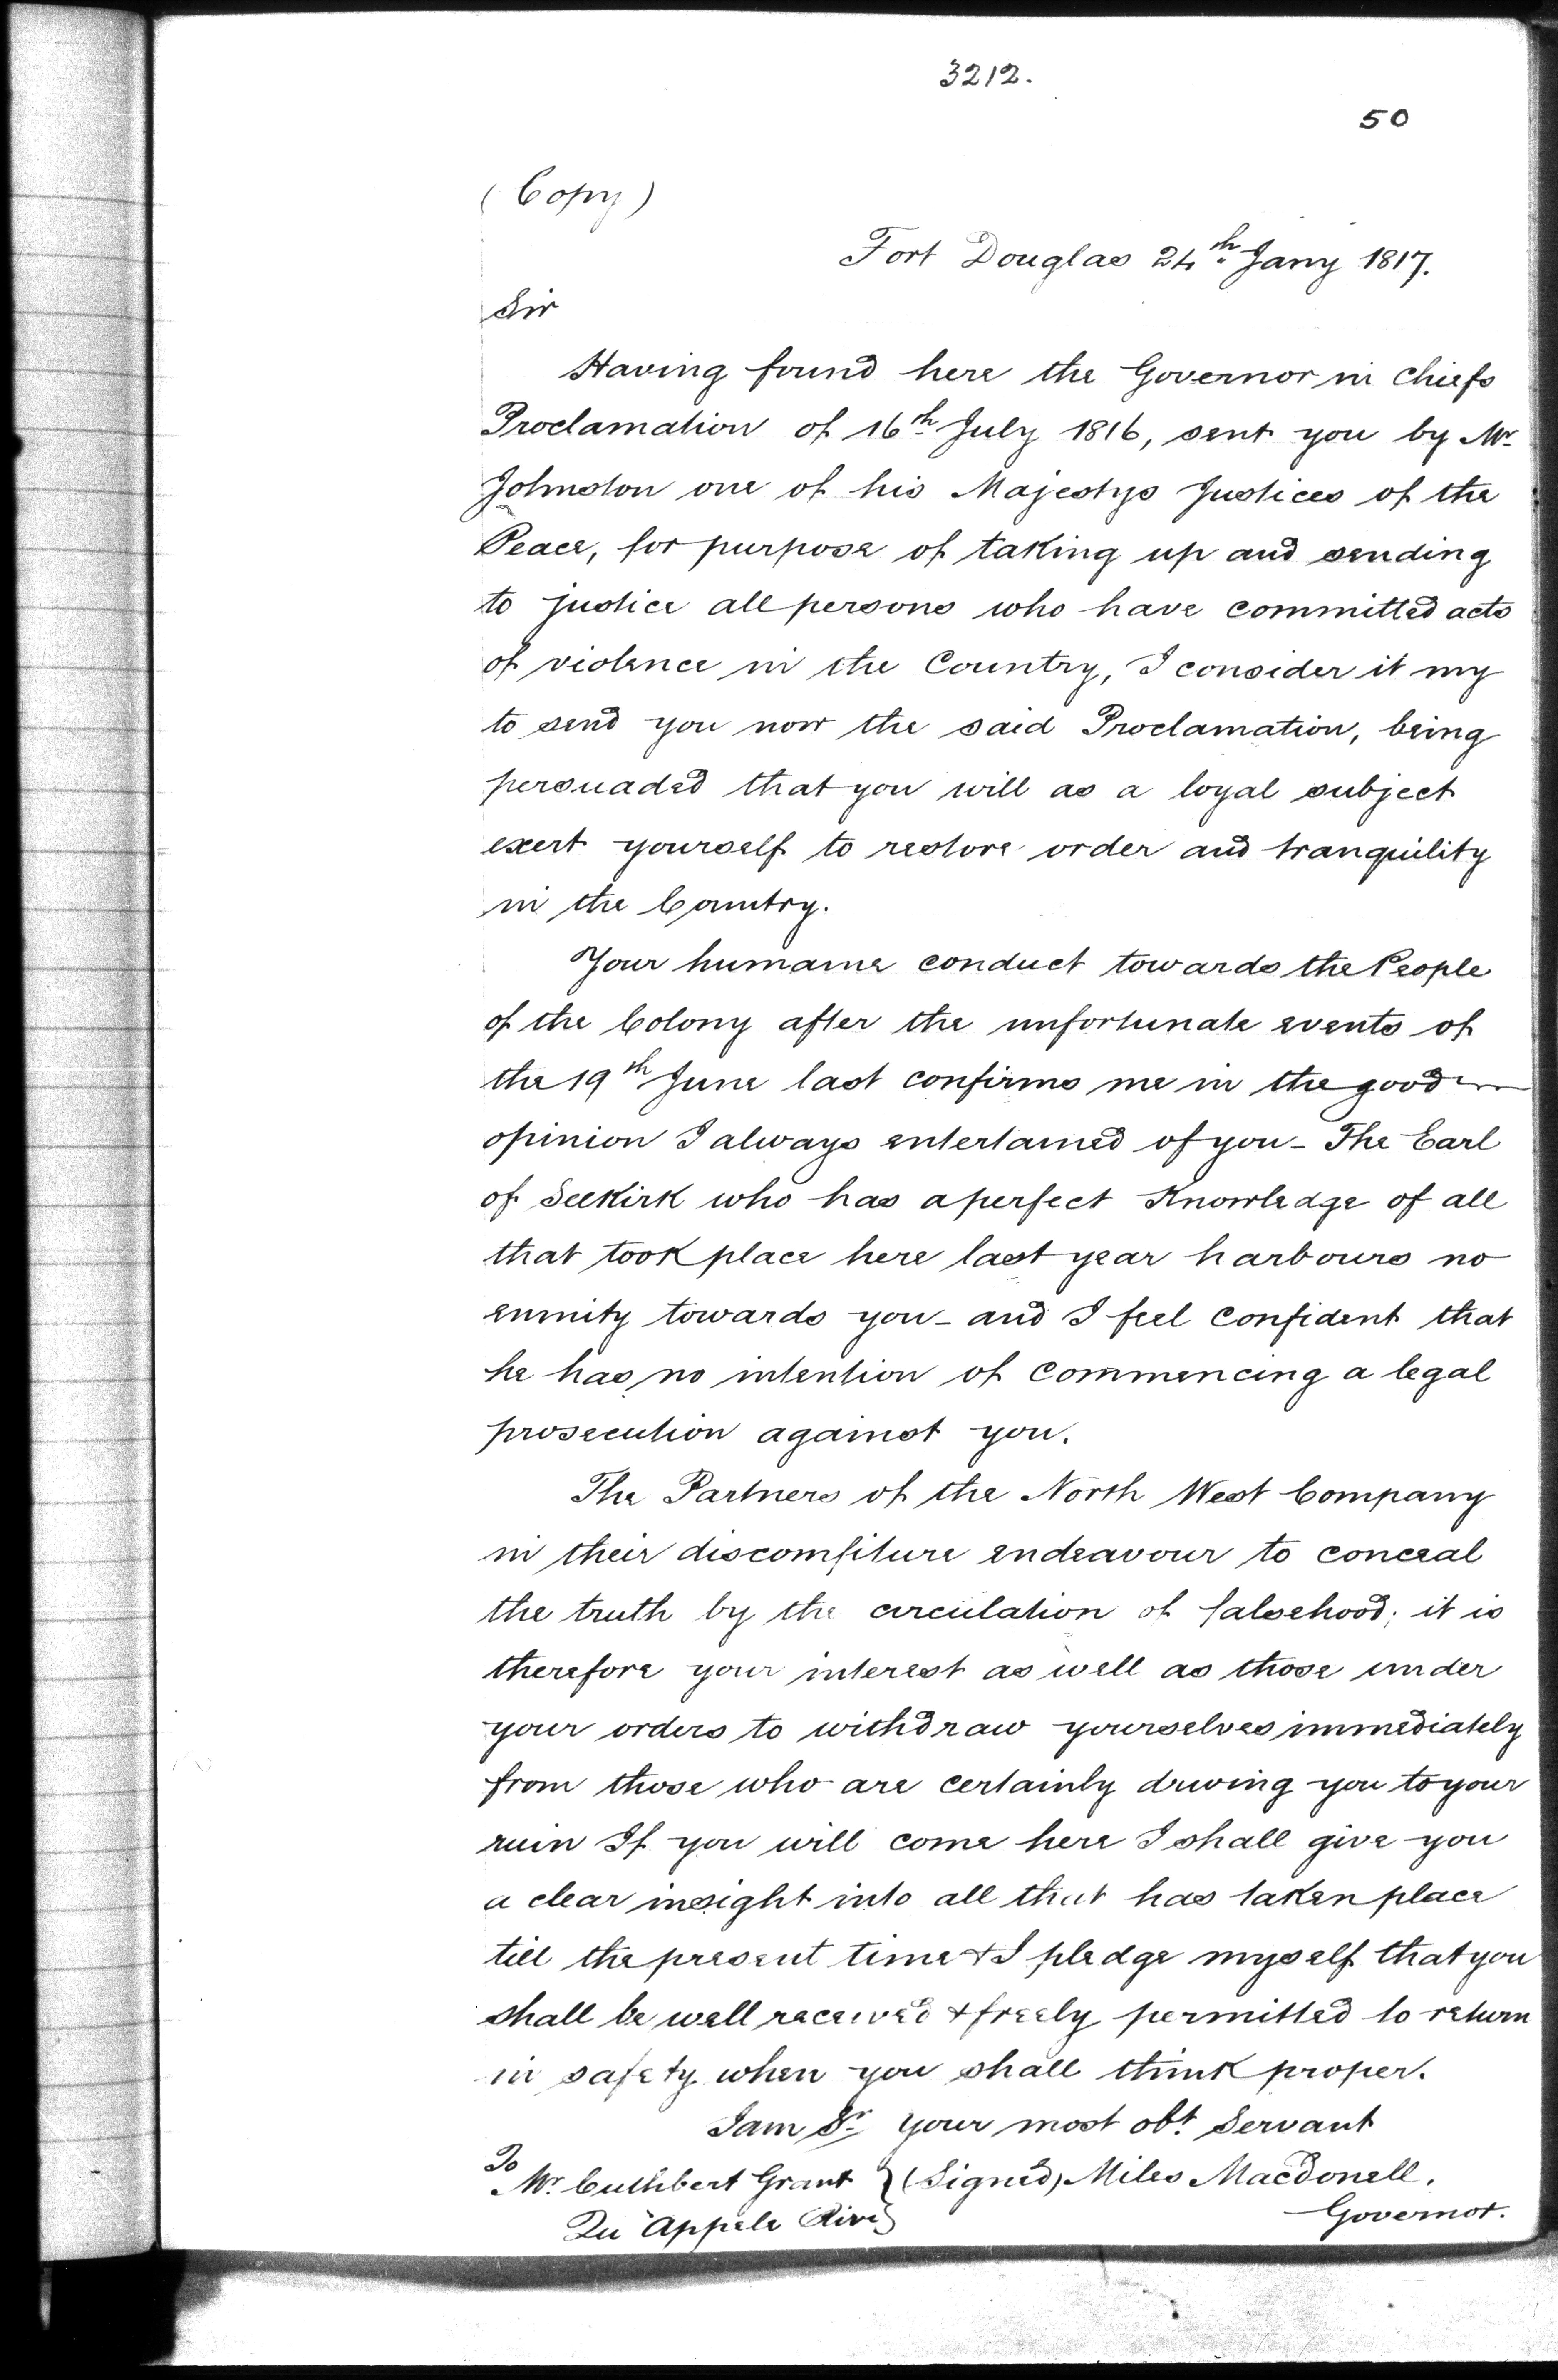 3212.
50
(Copy)
Fort Douglas 24th Jany 1817.
Sir
Having found here the Governor in Chiefs
Proclamation of 16th July 1816, sent you by Mr
Johnston one of his Majestys Justices of the
Peace, for purpose of taking up and sending
to justice all persons who have committed acts
of violence in the Country, I consider it my
to send you now the said Proclamation, being
persuaded that you will as a loyal subject
exert yourself to restore order and tranquility
in the Country.
Your humane conduct towards the People
of the Colony after the unfortunate events of
the 19th June last confirms me in the good
opinion I always entertained of you - The Earl
of Selkirk who has a perfect Knowledge of all
that took place here last year harbours no
enmity towards you - and I feel confident that
he has no intention of commencing a legal
prosecution against you.
The Partners of the North West Company
in their discomfiture endeavour to conceal
the truth by the circulation of falsehood; it is
therefore your interest as well as those under
your orders to withdraw yourselves immediately
from those who are certainly driving you to your
ruin If you will come here I shall give you
a clear insight into all that has taken place
till the present time & I pledge myself that you
shall be well received & freely permitted to return
in safety when you shall think proper.
I am Sr your most obt Servant
To
Mr. Cuthbert Grant } (Signed) Miles Macdonell.
Qu'Appele River Governor.